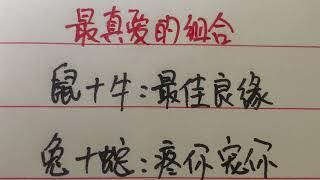 最真爱的组合
鼠+牛:最佳良缘
兔+蛇:疼你宠你